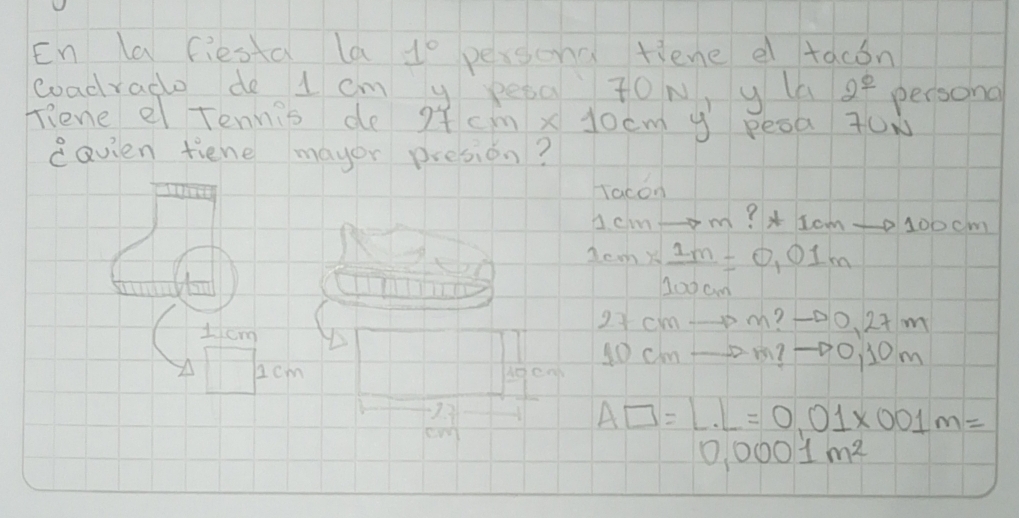 En la fiesta la 1º persona tiene el tacón
cuadrado de 1 cm y pesa 70N, y la 2º persona
Tiene el Tennis de 27cm x 10cm y pesa 70N
¿Quien tiene mayor presión?
Tacón
1cm → m? * 1cm → 100cm
1cm x 1m = 0,01m
100cm
27 cm → m? → 0,27m
10 cm → m? → 0,10m
1cm
1cm
10cm
27
cm
A□ = L.L = 0,01x001m=
0,0001m²